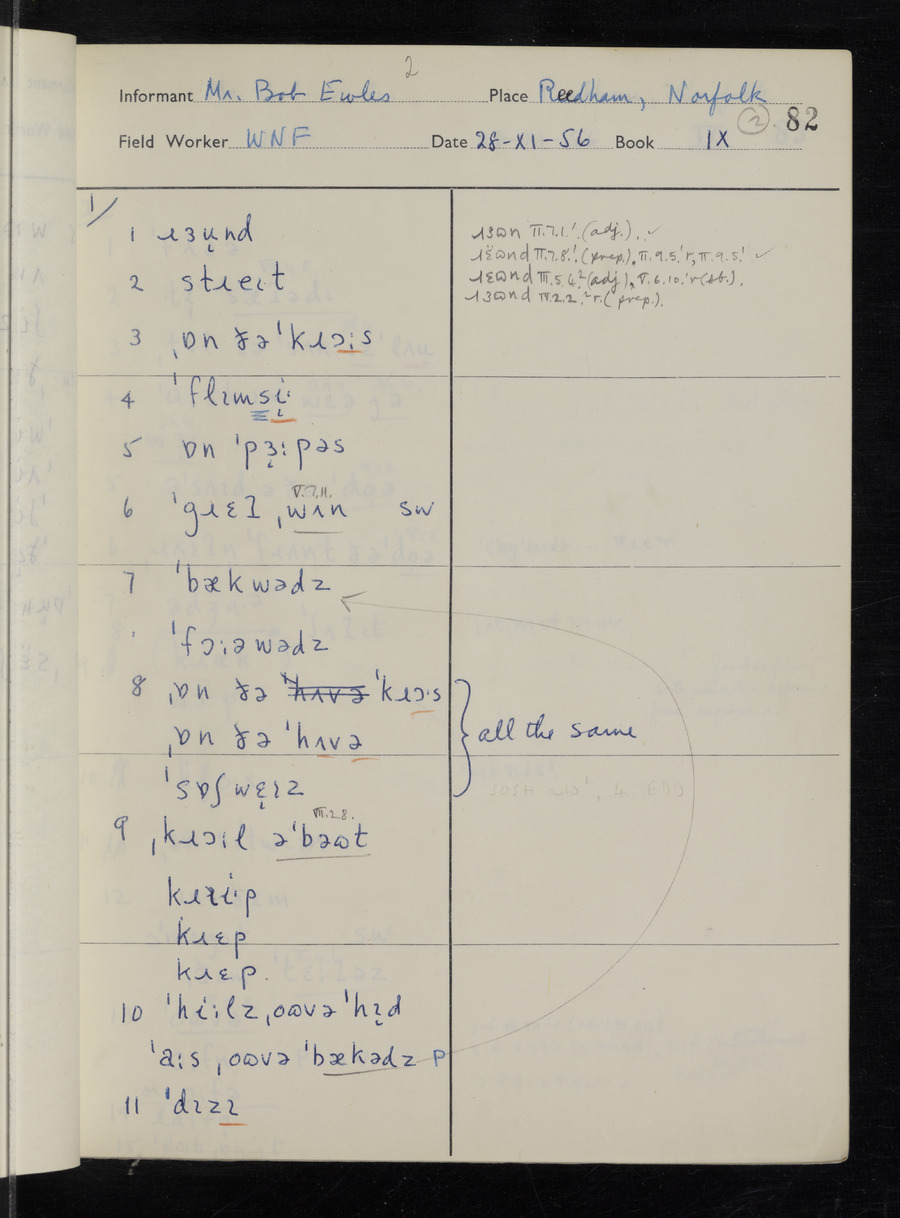 2
Informant Mr. Bob Ewles Place Reedham, Norfolk
2 82
Field Worker WNF Date 28-XI-56 Book IX
1/
1 ɹɜʉ̞nd
2 stɹɛɪt
3 ˌɒn ðə ˈkɹɔːs
4 ˈflɪmsi̞ˑ
5 ɒn ˈpɜ̞ːpəs
V.7.11.
6 ˈgɹɛɪ ˌwʌn sw
7 ˈbækwədz
ˈfɔːəwədz
8 ˌɒn ðə ˈkɹɔˑs
ˌɒn ðə ˈhʌvə
ˈsɒʃwɛ̞ɪz
all the same
VII.2.8.
9 ˌkɹɔːl əˈbəʊt
kɹiˑp
kɹɛp
kɹɛp.
10 ˈhiːlz ˌoʊvə ˈhɪ̞d
ˈaːs ˌoʊvə ˈbækədz P
11 ˈdɪzɪ
ɹɜʊn II.7.1.¹ (adj.). ✓
ɹɛ̈ʊnd II.7.8.¹ (prep.), II.9.5.¹r, II.9.5.¹ ✓
ɹɛʊnd III.5.6.² (adj), V.6.10.¹r (sb.).
ɹɜʊnd IV.2.2.²r. (prep.).